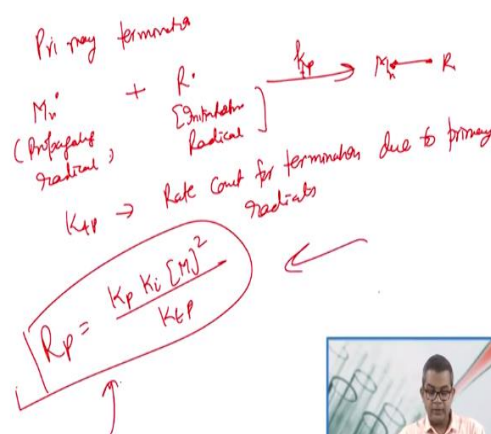 Primary termination
Mn• + R• ktp → Mn — R
(Propagating radical) [Initiation Radical]
Ktp → Rate const for termination due to primary
radicals
Rp = Kp Ki [M]² / Ktp